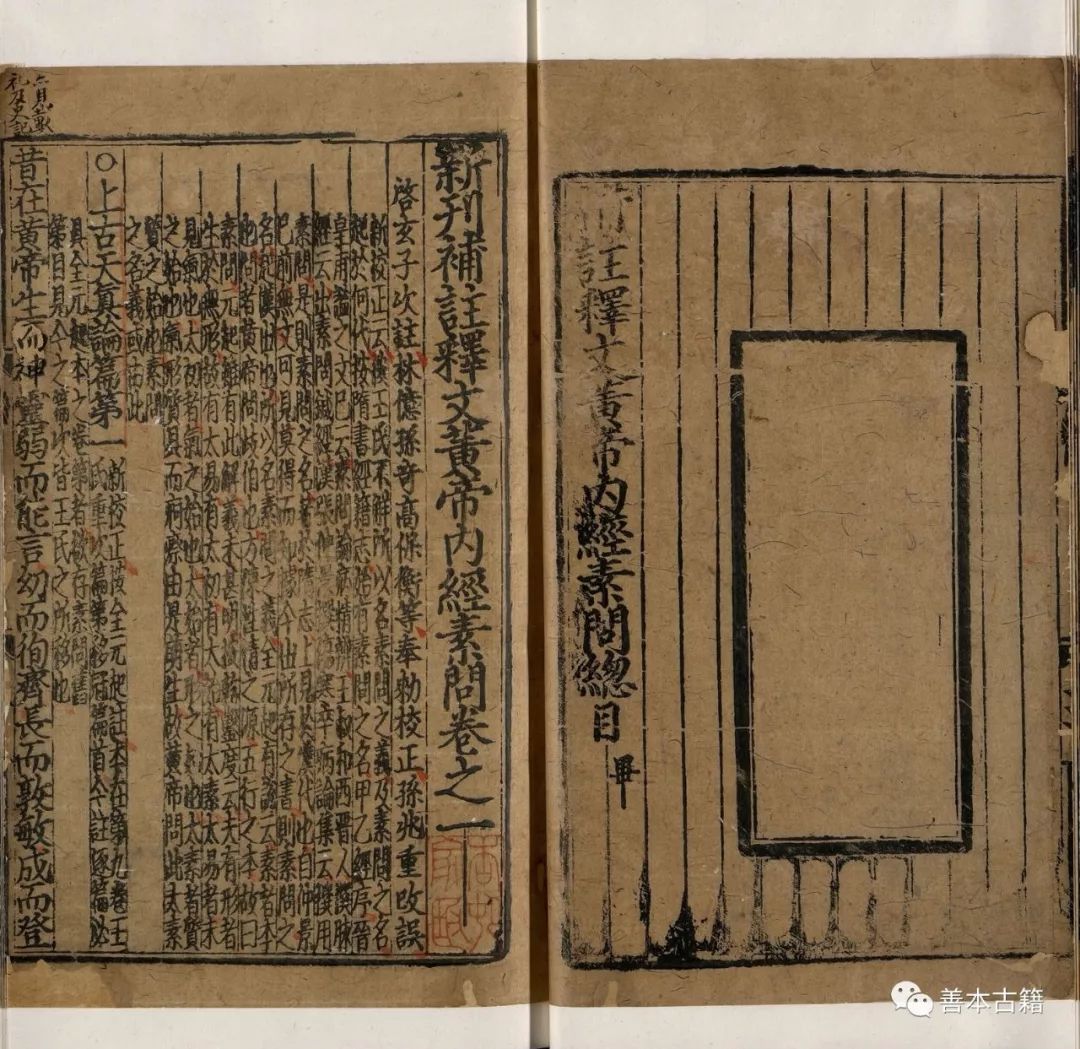 註釋文黃帝内經素問總目
畢
新刊補註釋文黃帝内經素問卷之一
啓玄子次註林億孫竒高保衡等奉勑校正孫兆重改誤
新校正云按王氏不解所以名素問之義及素問之名
起於何代按隋書經籍志始有素問之名甲乙經序晉
皇甫謐之文已云素問論病精辨王叔和西晉人撰脉
經云出素問鍼經漢張仲景撰傷寒卒病論集云撰用
素問是則素問之名著於隋志上見於漢代也自仲景
已前無文可見莫得而知據今世所存之書則素問之
名起漢世也所以名素問之義全元起有說云素者本
也問者黃帝問歧伯也方陳性情之源五行之本故曰
素問元起雖有此解義未甚明按乾鑿度云夫有形者
生於無形故有太易有太初有太始有太素太易者未
見氣也太初者氣之始也太始者形之始也太素者質
之始也氣形質具而痾瘵由是萌生故黃帝問此太素
質之始也素問
之名義或由此
○上古天真論篇第一
新校正按全元起註本在第九卷王
氏重次篇第移冠篇首今註逐篇必
具全元起本之卷第者欲存素問舊
第目見今之篇次皆王氏之所移也
昔在黃帝生而神靈弱而能言幼而侚齊長而敦敏成而登
善本古籍